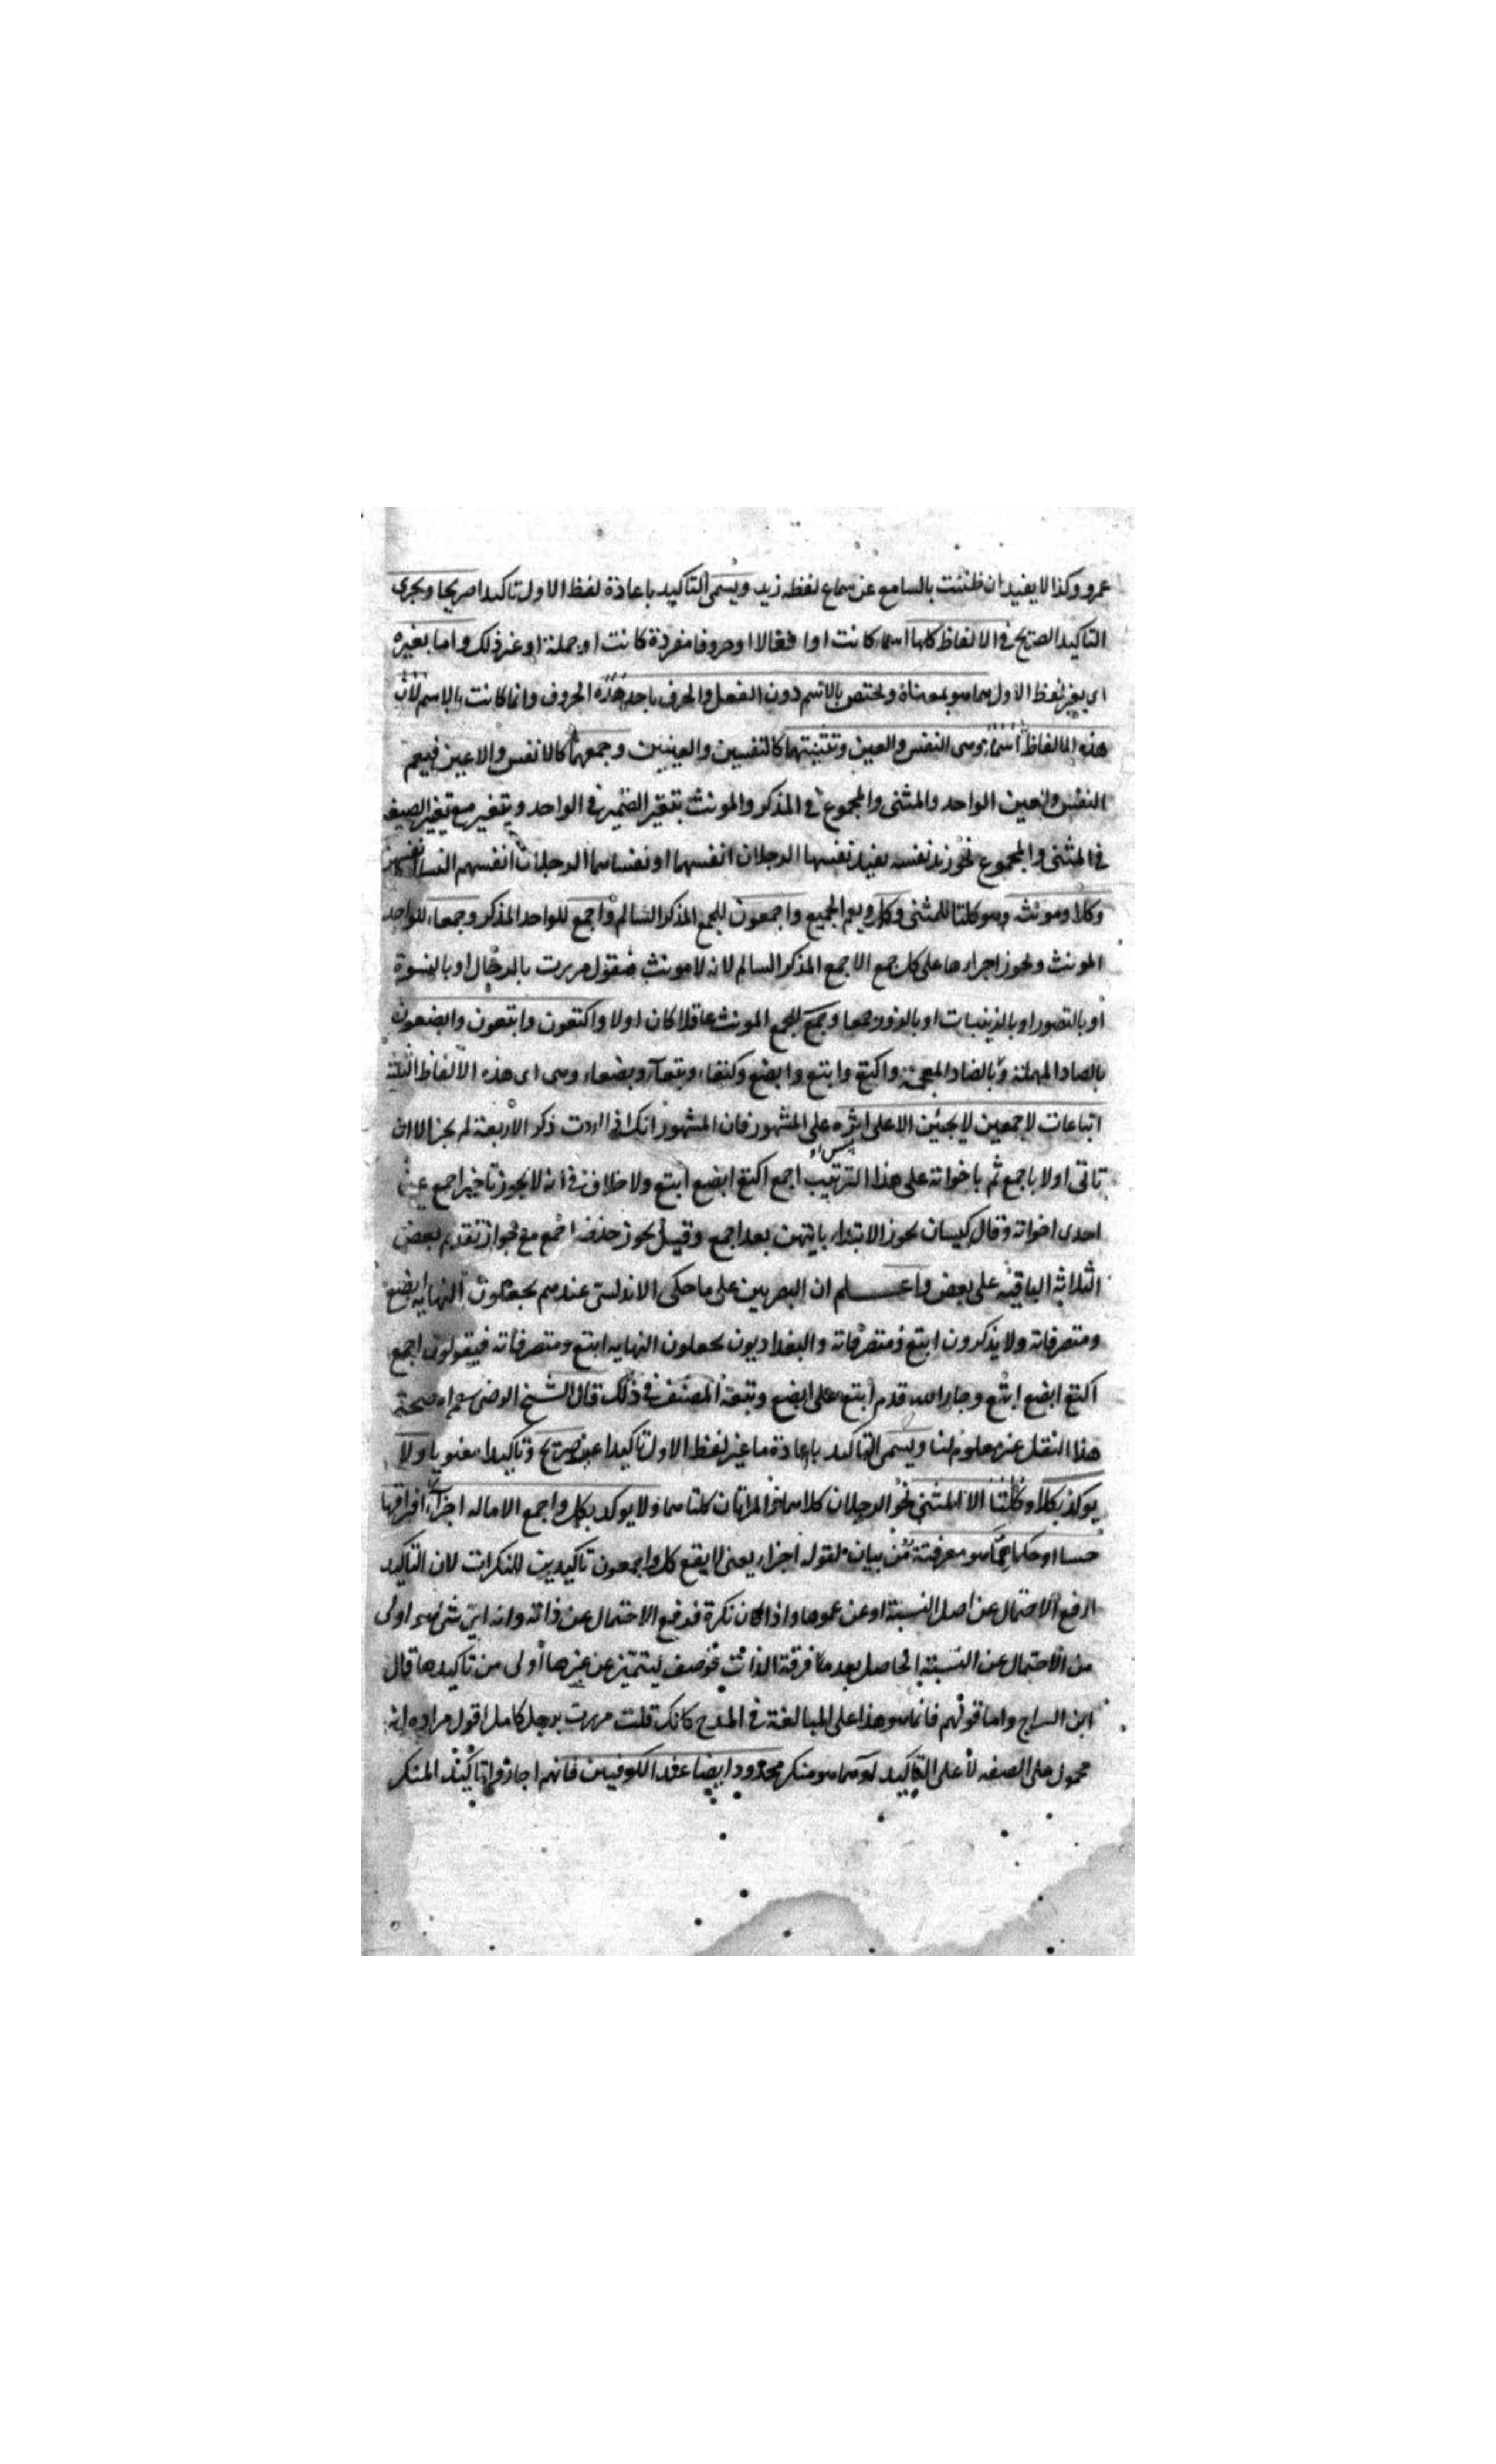 عمرو وكذا لا يفيد ان ظننت بالسامع عن سماع لفظه زيد ويسمى التاكيد باعادة لفظ الاول تاكيدا صريحا ويجرى
التاكيد الصريح فى الالفاظ كلها اسما كانت او افعالا او حروفا مفردة كانت او جملة او غير ذلك واما بغيره
اى بغير لفظ الاول مما هو بمعناه ويختص بالاسم دون الفعل والحرف باحد هذه الحروف وانما كانت بالاسم لان
هذه الالفاظ اسماء وهى النفس والعين وتثنيتهما كالنفسين والعينين وجمعهما كالانفس والاعين فيعم
النفس والعين الواحد والمثنى والمجموع فى المذكر والمونث بتغير الضمير فى الواحد ويتغير مع تغير الصيغه
فى المثنى والمجموع نحو زيد نفسه نفسها الرجلان انفسهما او نفساهما الرجال انفسهم النسا
وكلا ومونثه وهو كلتا للمثنى وكل ويعم الجميع واجمعون للجمع المذكر السالم واجمع للواحد المذكر وجمعاء للواحد
المونث ويجوز اجراءها على كل جمع الا جمع المذكر السالم لانه لا مونث فتقول مررت بالرجال او بالنسوة
او بالقصور او بالزينبات او جمعا وجمع لجمع المونث عاقلا كان اولا واكتعون وابتعون وابضعون
بالصاد المهملة وبالضاد المعجمة واكتع وابتع وابضع وكتعاء وبتعاء وبضعاء وهى اى هذه الالفاظ الثلثة
اتباعات لاجمعين لا يجئين الا على اثره على المشهور فان المشهور انك اذا اردت ذكر الاربعة لم يجز الا ان
تاتى اولا باجمع ثم باخواته على هذا الترتيب اجمع اكتع ابضع ابتع ولا خلاف فى انه لا يجوز تاخير اجمع عن
احدى اخواته وقال كيسان يجوز الابتداء بايتهن بعد اجمع وقيل يجوز حذف اجمع مع جواز تقديم بعض
الثلاثة الباقيه على بعض واعلم ان البصريين على ما حكى الاندلسى عندهم يجعلون النهايه ابضع
ومتصرفاته ولا يذكرون ابتع ومتصرفاته والبغداديون يجعلون النهايه ابتع ومتصرفاته فيقولون اجمع
اكتع ابضع ابتع وجار الله قدم ابتع على ابضع وتبعه المصنف فى ذلك قال الشيخ الرضى صحة
هذا النقل عنه معلوم لنا ويسمى التاكيد باعادة ما غير لفظ الاول تاكيدا غير صريح وتاكيدا معنويا ولا
يوكد بكلا وكلتا الا المثنى نحو الرجلان كلاهما والمراتان كلتاهما ولا يوكد بكل واجمع الا ماله اجزاء افتراقها
حسا او حكما مما هو معرفة من بيان لقوله اجزاء يعنى لا يقع كل واجمعون تاكيدين للنكرات لان التاكيد
لرفع الاحتمال عن اصل النسبة او عن عمومها واذا كان نكرة فدفع الاحتمال عن ذاته وانه اى شى هو اولى
من الاحتمال عن النسبة الحاصل بعد معرفة الذات فوصف ليتميز عن غيرها اولى من تاكيدها قال
ابن السراج واما قولهم فانما هو هذا على المبالغة فى المدح كانك قلت مررت برجل كامل اقول مراده انه
محمول على الصفه لا على التاكيد او مما هو منكر محدود ايضا عند الكوفيين فانهم اجازوا تاكيد المنكر